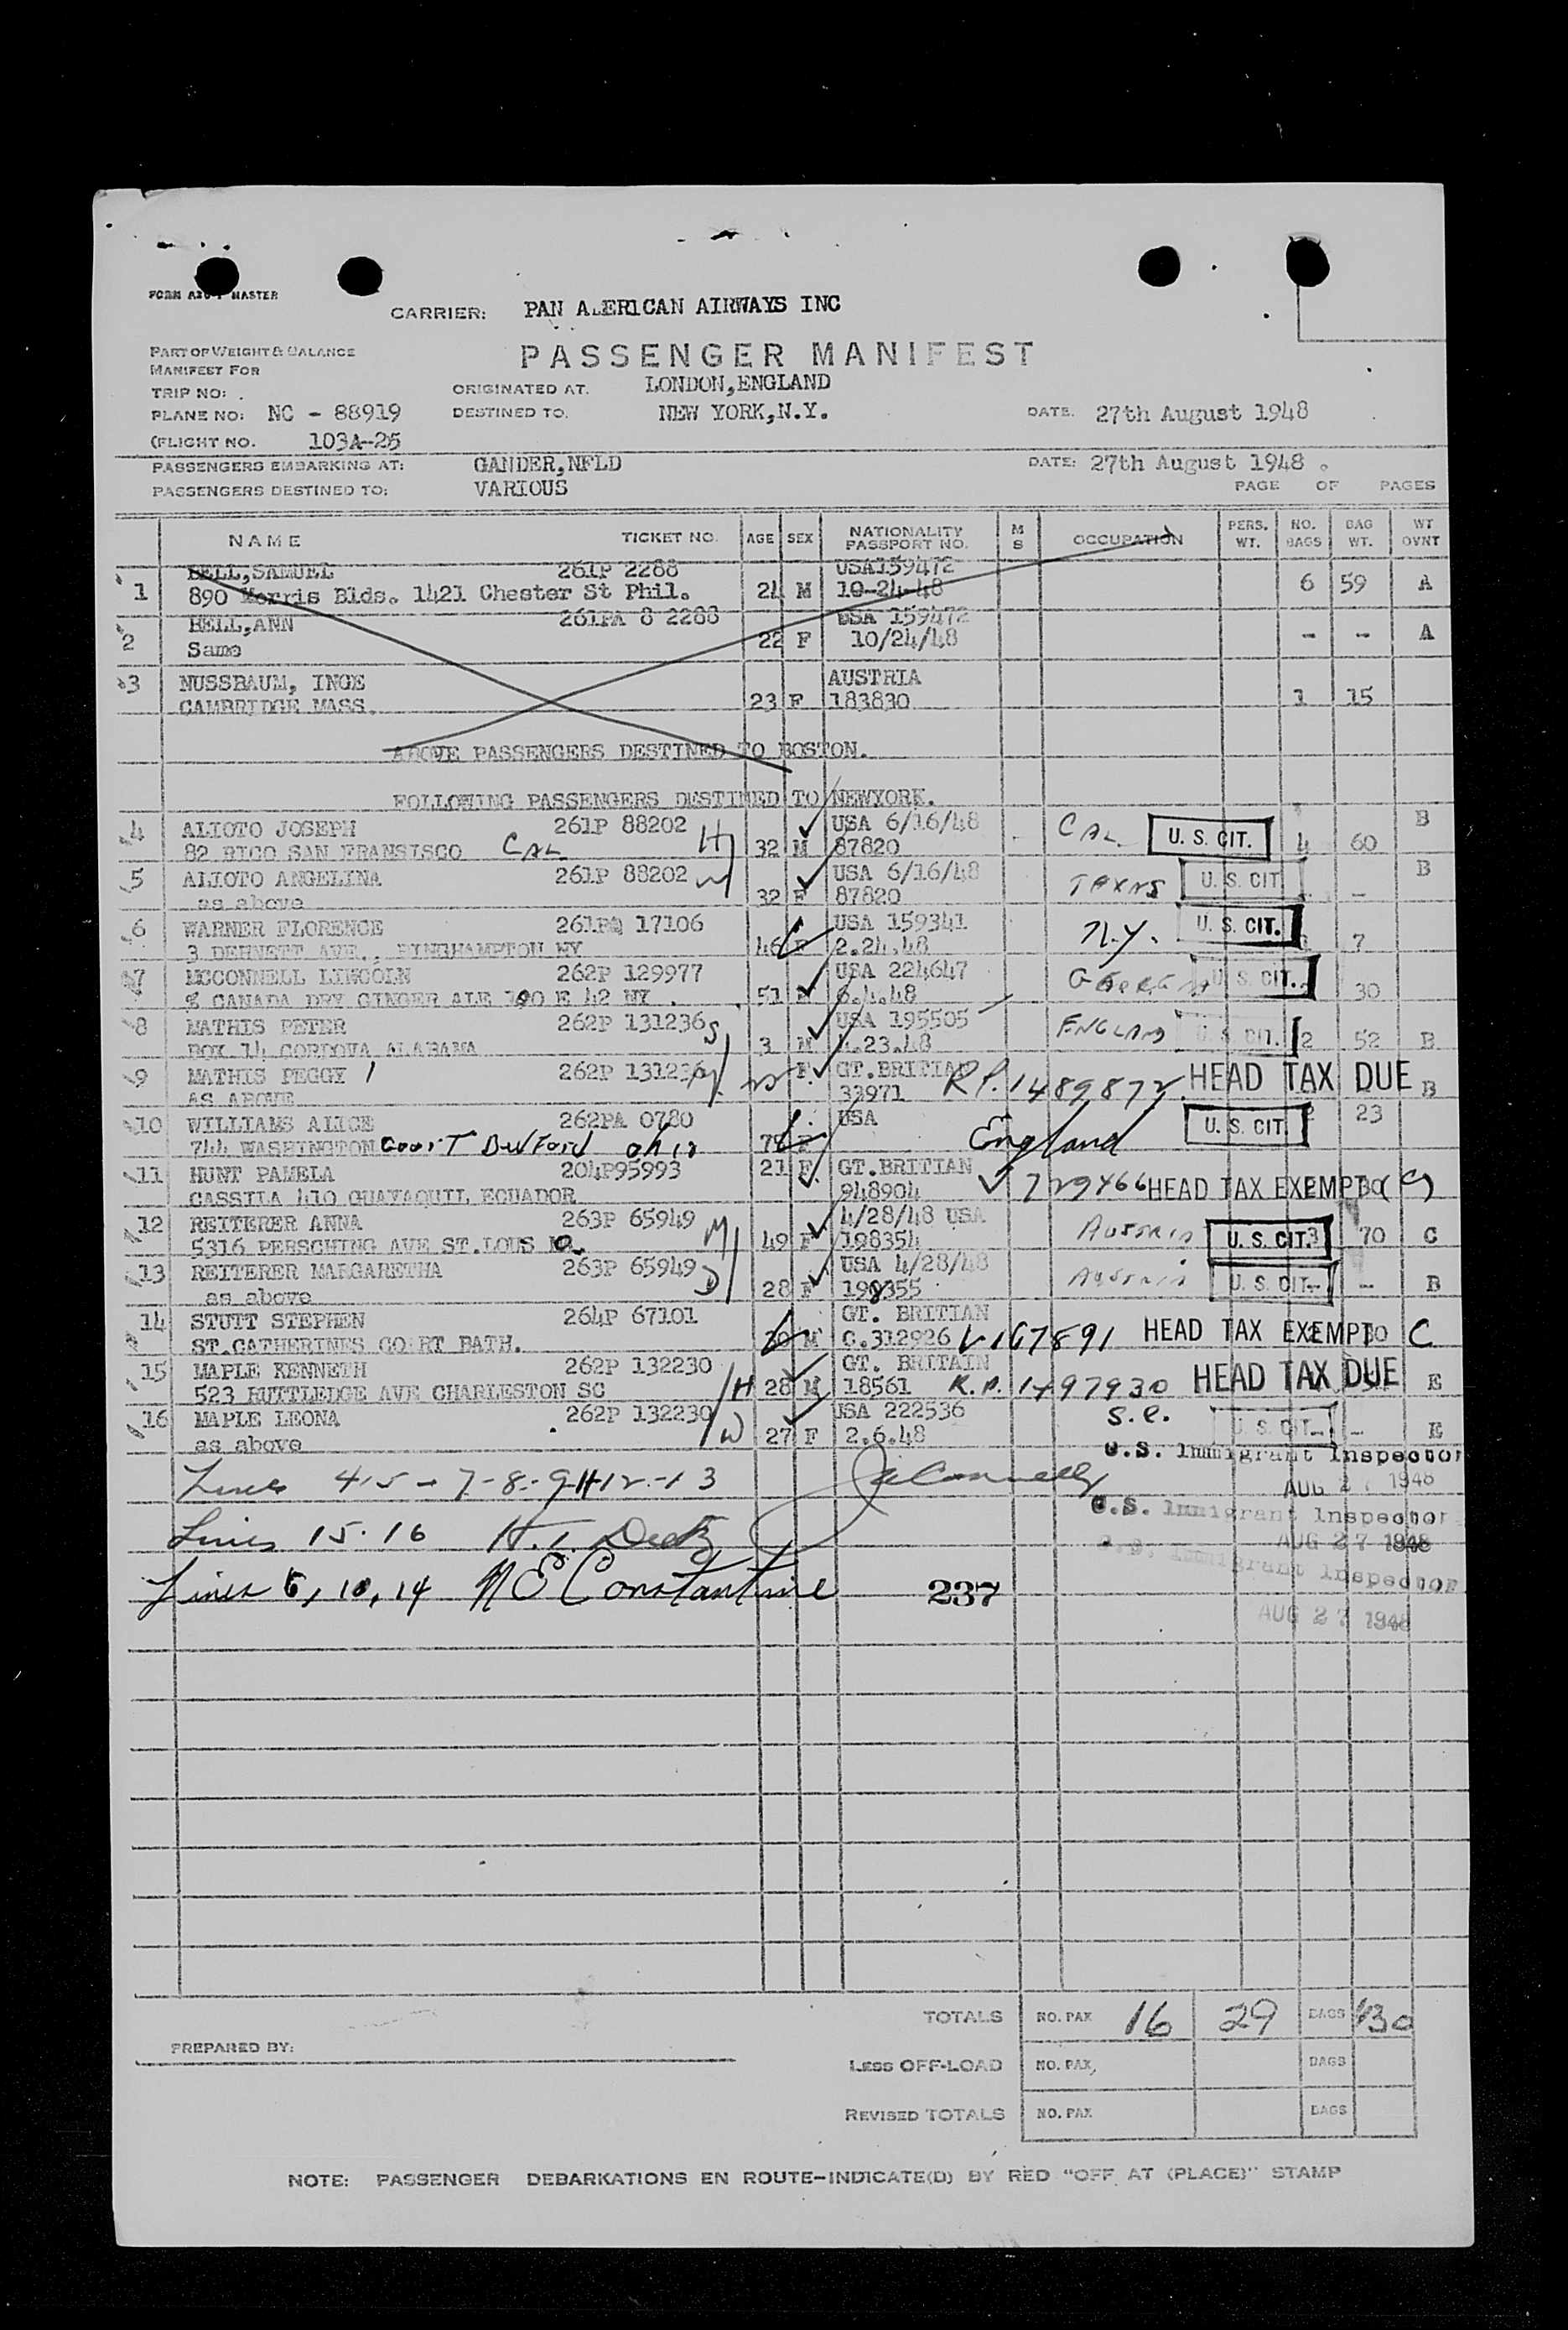 FORM MASTER
CARRIER: PAN A ERICAN AIRWAYS INC
PART OF WEIGHT & BALANCE
MANIFEST FOR
PASSENGER MANIFEST
TRIP NO: ORIGINATED AT. LONDON,ENGLAND
PLANE NO: NC - 88919 DESTINED TO. NEW YORK,N.Y. DATE. 27th August 1948
(FLIGHT NO. 103A-25
PASSENGERS EMBARKING AT: GANDER,NFLD DATE: 27th August 1948 .
PASSENGERS DESTINED TO: VARIOUS PAGE OF PAGES
NAME TICKET NO. AGE SEX NATIONALITY PASSPORT NO. M S OCCUPATION PERS. WT. NO. BAGS BAG WT. WT OVNT
BELL,SAMUEL 261P 2288 USA159472
1 890 Morris Blds. 1421 Chester St Phil. 24 M 10-24-48 6 59 A
BELL,ANN 261PA 8 2288 USA 159472
2 Same 22 F 10/24/48 - -- A
3 NUSSBAUM, INGE AUSTRIA
CAMBRIDGE MASS. 23 F 183830 1 15
ABOVE PASSENGERS DESTINED TO BOSTON.
FOLLOWING PASSENGERS DESTINED TO NEWYORK.
4 ALIOTO JOSEPH 261P 88202 USA 6/16/48 CAL U. S. CIT. B
82 RICO SAN FRANSISCO CAL H 32 M 87820 4 60
5 ALIOTO ANGELINA 261P 88202 W USA 6/16/48 TEXAS U. S. CIT B
as above 32 F 87820 -
6 WARNER FLORENCE 261PA 17106 USA 159341 N.Y. U. S. CIT.
3 DENNETT AVE., BINGHAMPTON NY 46 F 2.24.48 7
7 MCCONNELL LINCOLN 262P 129977 USA 224647 U. S. CIT.
% CANADA DRY GINGER ALE 100 E 42 NY . 51 M 6.4.48 30
8 MATHIS PETER 262P 131236 S USA 195505 ENGLAND U. S. CIT.
BOX 14 CORDOVA ALABAMA 3 M 4.23.48 2 52 B
9 MATHIS PEGGY 262P 131236 M F GT.BRITIAN R.P. 1489872 HEAD TAX DUE B
AS ABOVE 33971
10 WILLIAMS ALICE 262PA 0780 USA England U. S. CIT. 23
744 WASHINGTON Court Bedford ohio F
11 HUNT PAMELA 204P95993 21 F GT.BRITIAN
CASSILA 410 GUAYAQUIL ECUADOR 948904 729466 HEAD TAX EXEMPT
12 REITERER ANNA 263P 65949 M 4/28/48 USA Austria U. S. CIT.
5316 PERSCHING AVE ST.LOUS 49 F 198354 3 70 C
13 REITERER MARGARETHA 263P 65949 D USA 4/28/48 Austria U. S. CIT.
as above 28 F 198355 - - B
14 STUTT STEPHEN 264P 67101 GT. BRITIAN
ST.CATHERINES CO RT BATH. 30 M C.312926 V 167891 HEAD TAX EXEMPT C
15 MAPLE KENNETH 262P 132230 GT. BRITAIN
523 RUTTLEDGE AVE CHARLESTON SC H 28 M 18561 R.P. 1497930 HEAD TAX DUE E
16 MAPLE LEONA 262P 132230 USA 222536 S.C. U. S. CIT.
as above W 27 F 2.6.48 - E
U.S. Immigrant Inspector
Lines 4-5-7-8-9-11-12-13
AUG 27 1948
U.S. Immigrant Inspector
Lines 15.16 H. T.
AUG 27 1948
U.S. Immigrant Inspector
Lines 6, 10, 14 N E Constantine 237
AUG 27 1948
TOTALS NO. PAX 16 29 BAGS 430
PREPARED BY:
LESS OFF-LOAD NO. PAX, BAGS
REVISED TOTALS NO. PAX BAGS
NOTE: PASSENGER DEBARKATIONS EN ROUTE-INDICATE(D) BY RED "OFF AT (PLACE)" STAMP